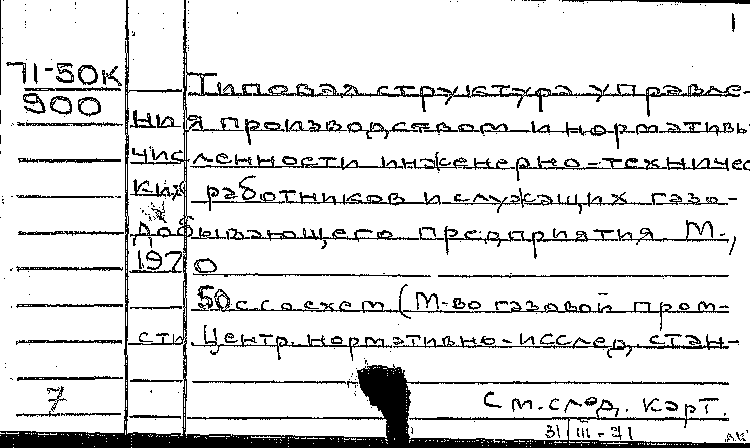 1
71-50к
900
Типовая структура управле-
ния производством и нормативы
численности инженерно-техничес
ких работников и служащих газо-
добывающего предприятия М.,
1970
50с со схем (М-во газовой пром-
сти Центр. нормативно-исслед. стан-
7
См. след. карт.
31/III-71